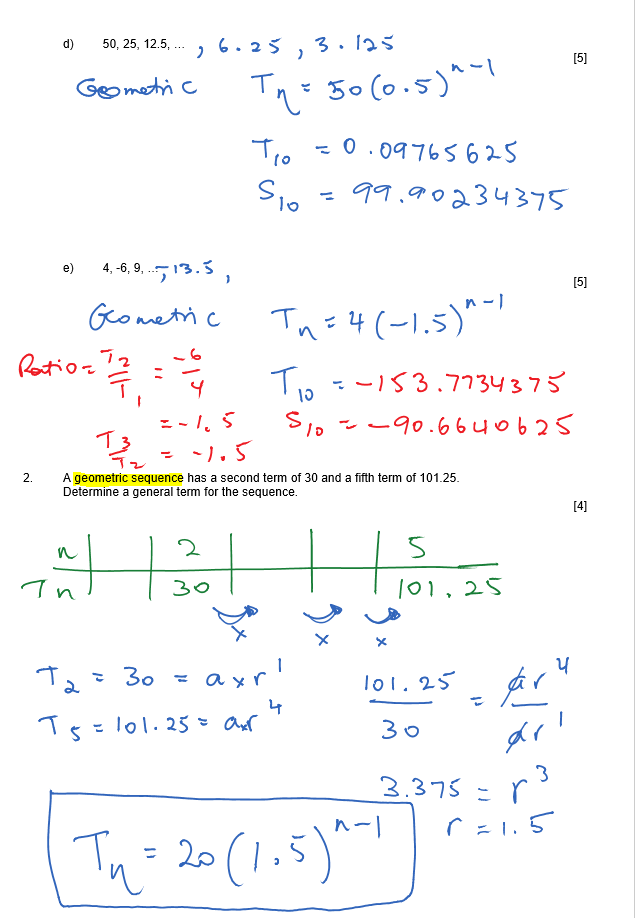 d) 50, 25, 12.5, ... , 6.25 , 3.125
[5]
Geometric Tn = 50(0.5)^n-1
T10 = 0.09765625
S10 = 99.90234375
e) 4, -6, 9, ... -, 13.5 ,
[5]
Geometric Tn = 4(-1.5)^n-1
Ratio = T2/T1 = -6/4 T10 = -153.7734375
= -1.5 S10 = -90.6640625
T3/T2 = -1.5
2. A geometric sequence has a second term of 30 and a fifth term of 101.25.
Determine a general term for the sequence.
[4]
n 2 5
Tn 30 101.25
x x x
T2 = 30 = a x r^1 101.25/30 = ar^4/ar^1
T5 = 101.25 = a x r^4
3.375 = r^3
r = 1.5
Tn = 20(1.5)^n-1